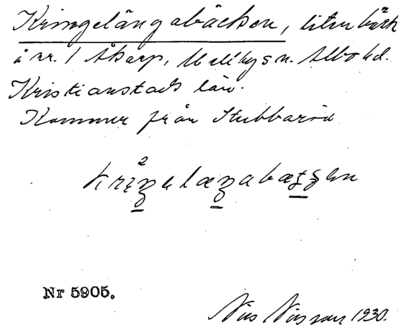 Kringelängabäcken, liten bäck
å nr. 1 Åkarp, Mellby sn. Albo hd.
Kristianstads län.
Kommer från Stubbaröd
Nr 5905.
Nils Nilsson 1930.